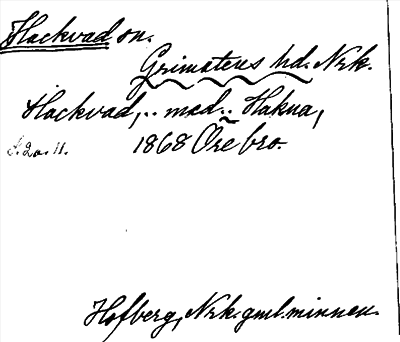 Hackvad sn.
Grimstens hd. Nrk.
Hackvad, .. med .. Hakna,
1868 Örebro.
S. 20. 11.
Hofberg, Nrk. gml. minnen.